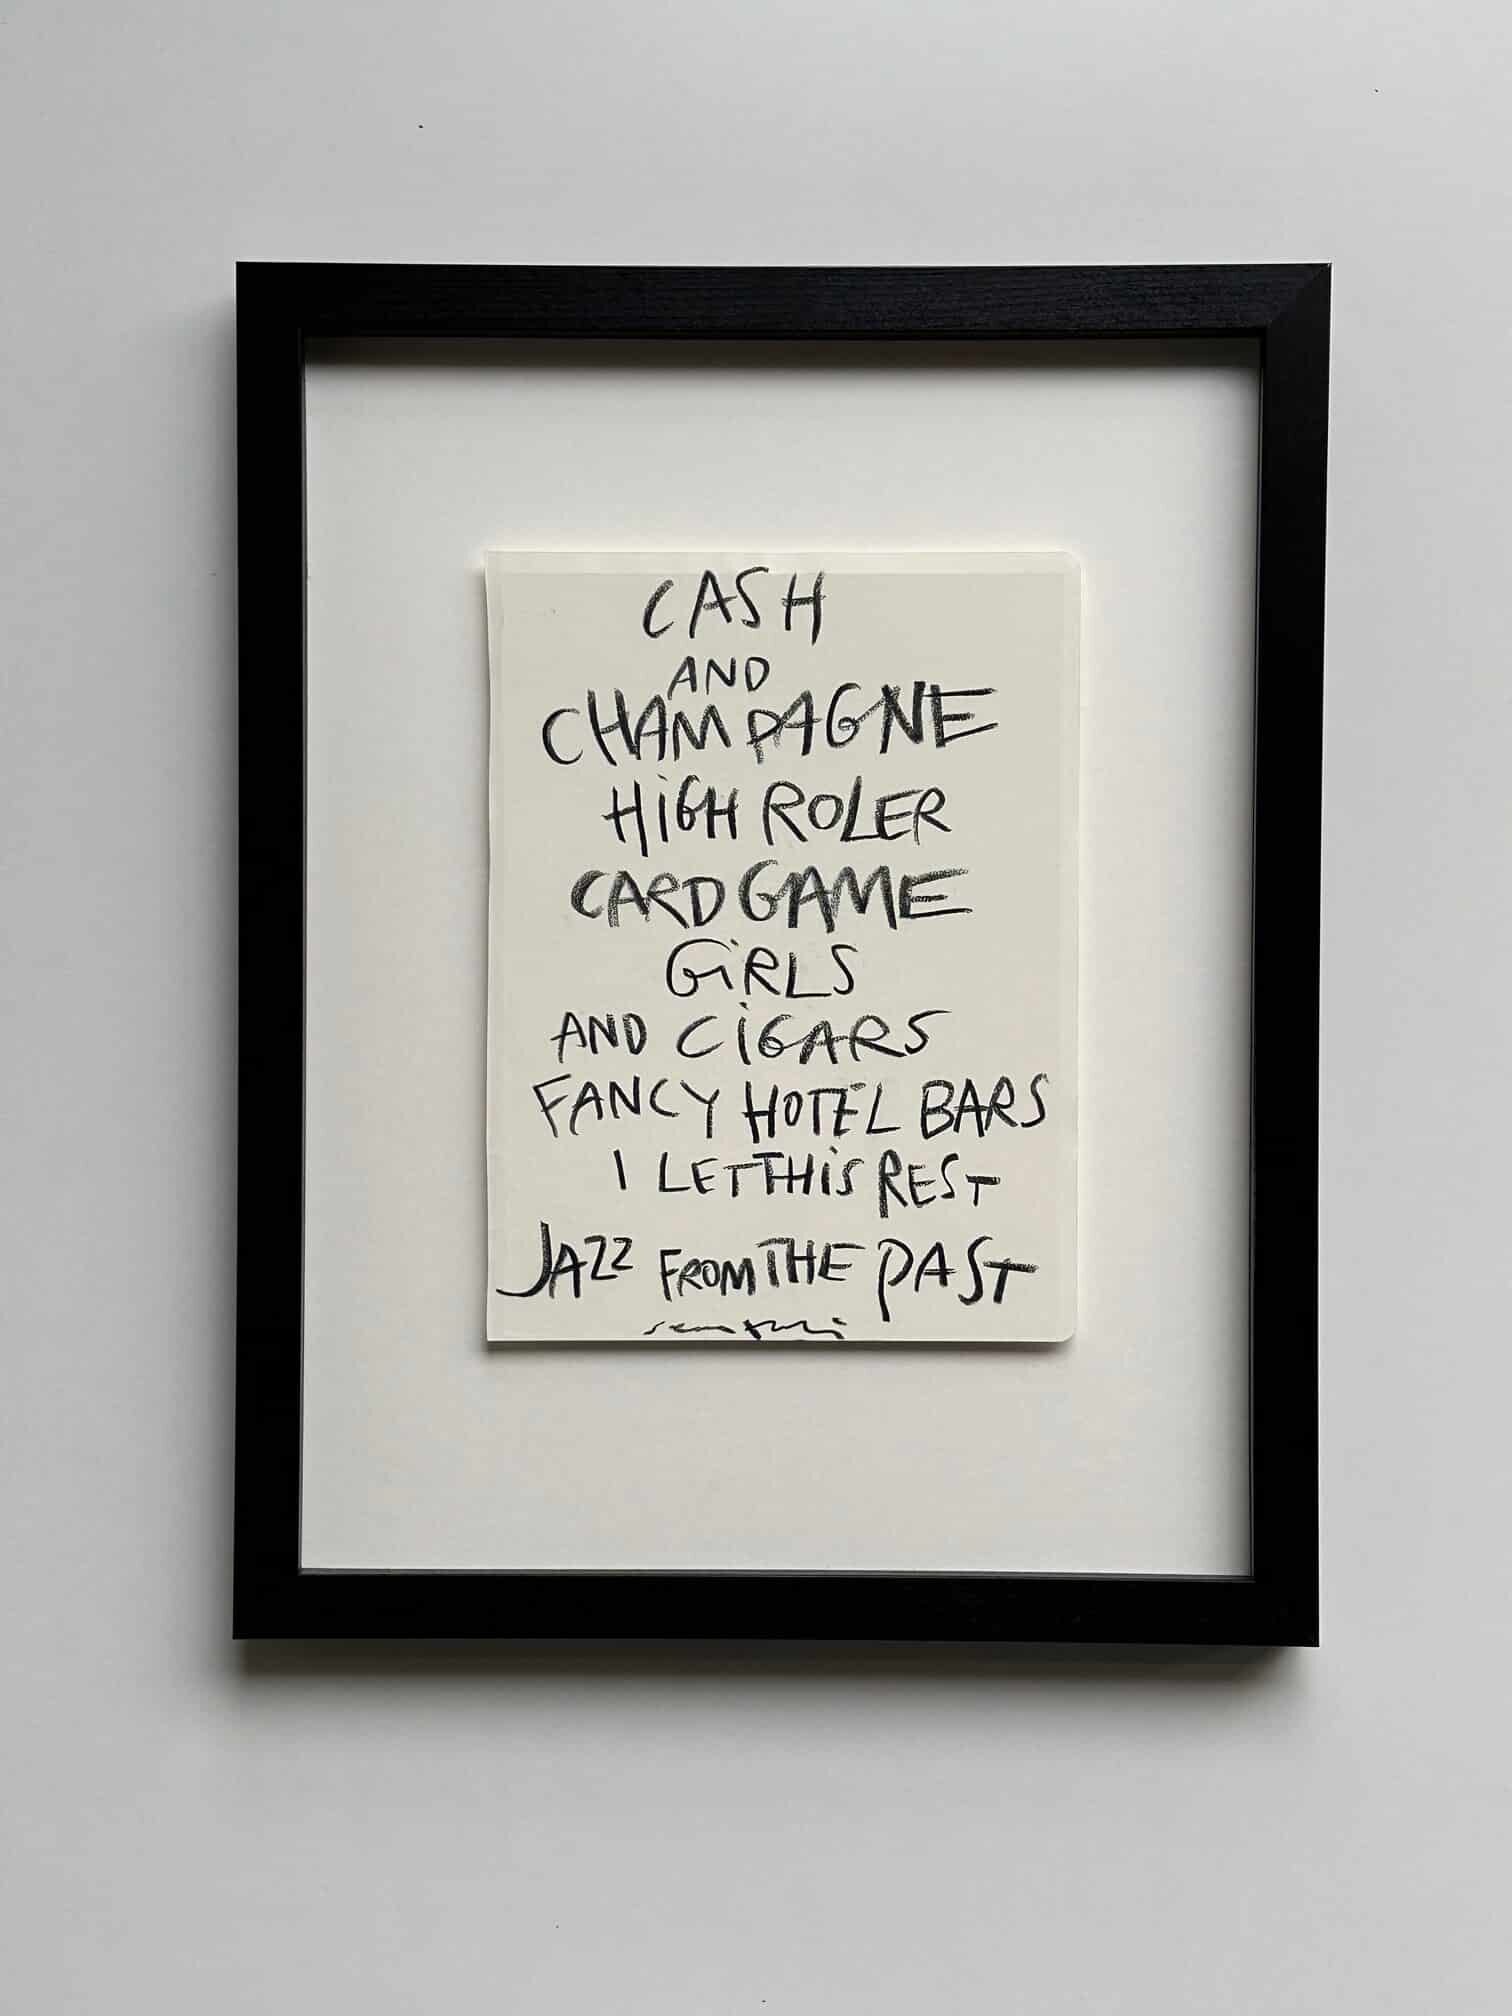 CASH
AND
CHAMPAGNE
HiGH ROLER
CARD GAME
GiRLS
AND CiGARS
FANCY HOTEL BARS
I LET THiS REST
JAZZ FROM THE PAST